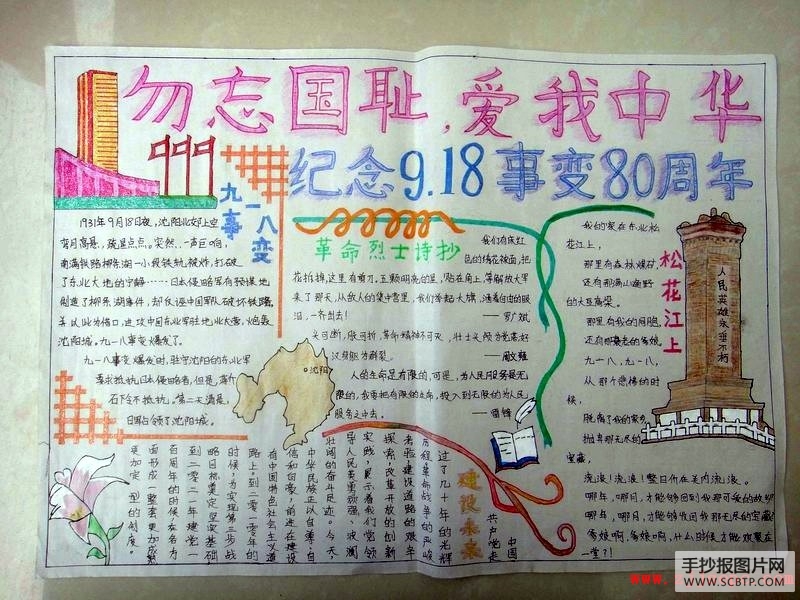 勿忘国耻,爱我中华
纪念9.18事变80周年
九一八
事变
1931年9月18日夜,沈阳北郊上空
弯月高悬,疏星点点。突然,一声巨响,
南满铁路柳条湖一小段铁轨被炸,打破
了东北大地的宁静……日本侵略军有预谋地
制造了柳条湖事件,却反诬中国军队破坏铁路,
并以此为借口,进攻中国东北军驻地北大营,炮轰
沈阳城。九一八事变爆发了。
九一八事变爆发时,驻守沈阳的东北军
要求抵抗日本侵略者,但是,蒋介
石下令不抵抗。第二天清晨,
日军占领了沈阳城。
沈阳
革命烈士诗抄
我们有床红
色的绣花被面,把
花拆掉,这里有剪刀。五颗明亮的星,贴在角上,等解放大军
来了那天,从敌人的集中营里,我们举起大旗,洒着自由的眼
泪,一齐出去!
——罗广斌
头可断,肢可折,革命精神不可灭。壮士头颅为党落,好
汉身躯为群裂。
——周文雍
人的生命是有限的,可是,为人民服务是无
限的,我要把有限的生命,投入到无限的为人民
服务之中去。
——雷锋
松花江上
我的家在东北松
花江上,
那里有森林煤矿,
还有那满山遍野
的大豆高粱。
那里有我的同胞,
还有那衰老的爹娘。
九一八,九一八,
从那个悲惨的时
候,
脱离了我的家乡,
抛弃那无尽的
宝藏,
流浪!流浪!整日价在关内流浪。
哪年,哪月,才能够回到我那可爱的故乡?
哪年,哪月,才能够收回我那无尽的宝藏?
爹娘啊,爹娘啊,什么时候才能欢聚在
一堂?!
人民英雄永垂不朽
建设未来
中国
共产党走
过了几十年的光辉
历程革命战争的严峻
考验建设道路的艰辛
探索,改革开放的创新
实践,展示着我们党领
导人民英勇顽强、波澜
壮阔的奋斗足迹。今天,
中华民族正以自尊、自
信和自豪,前进在建设
有中国特色社会主义道
路上。到二零一零年的
时候,为实现第三步战
略目标奠定坚实基础
到二零二一年建党一
百周年的时候,在各方
面形成一整套更加成熟
更加定型的制度。
手抄报图片网
WWW.SCBTP.COM